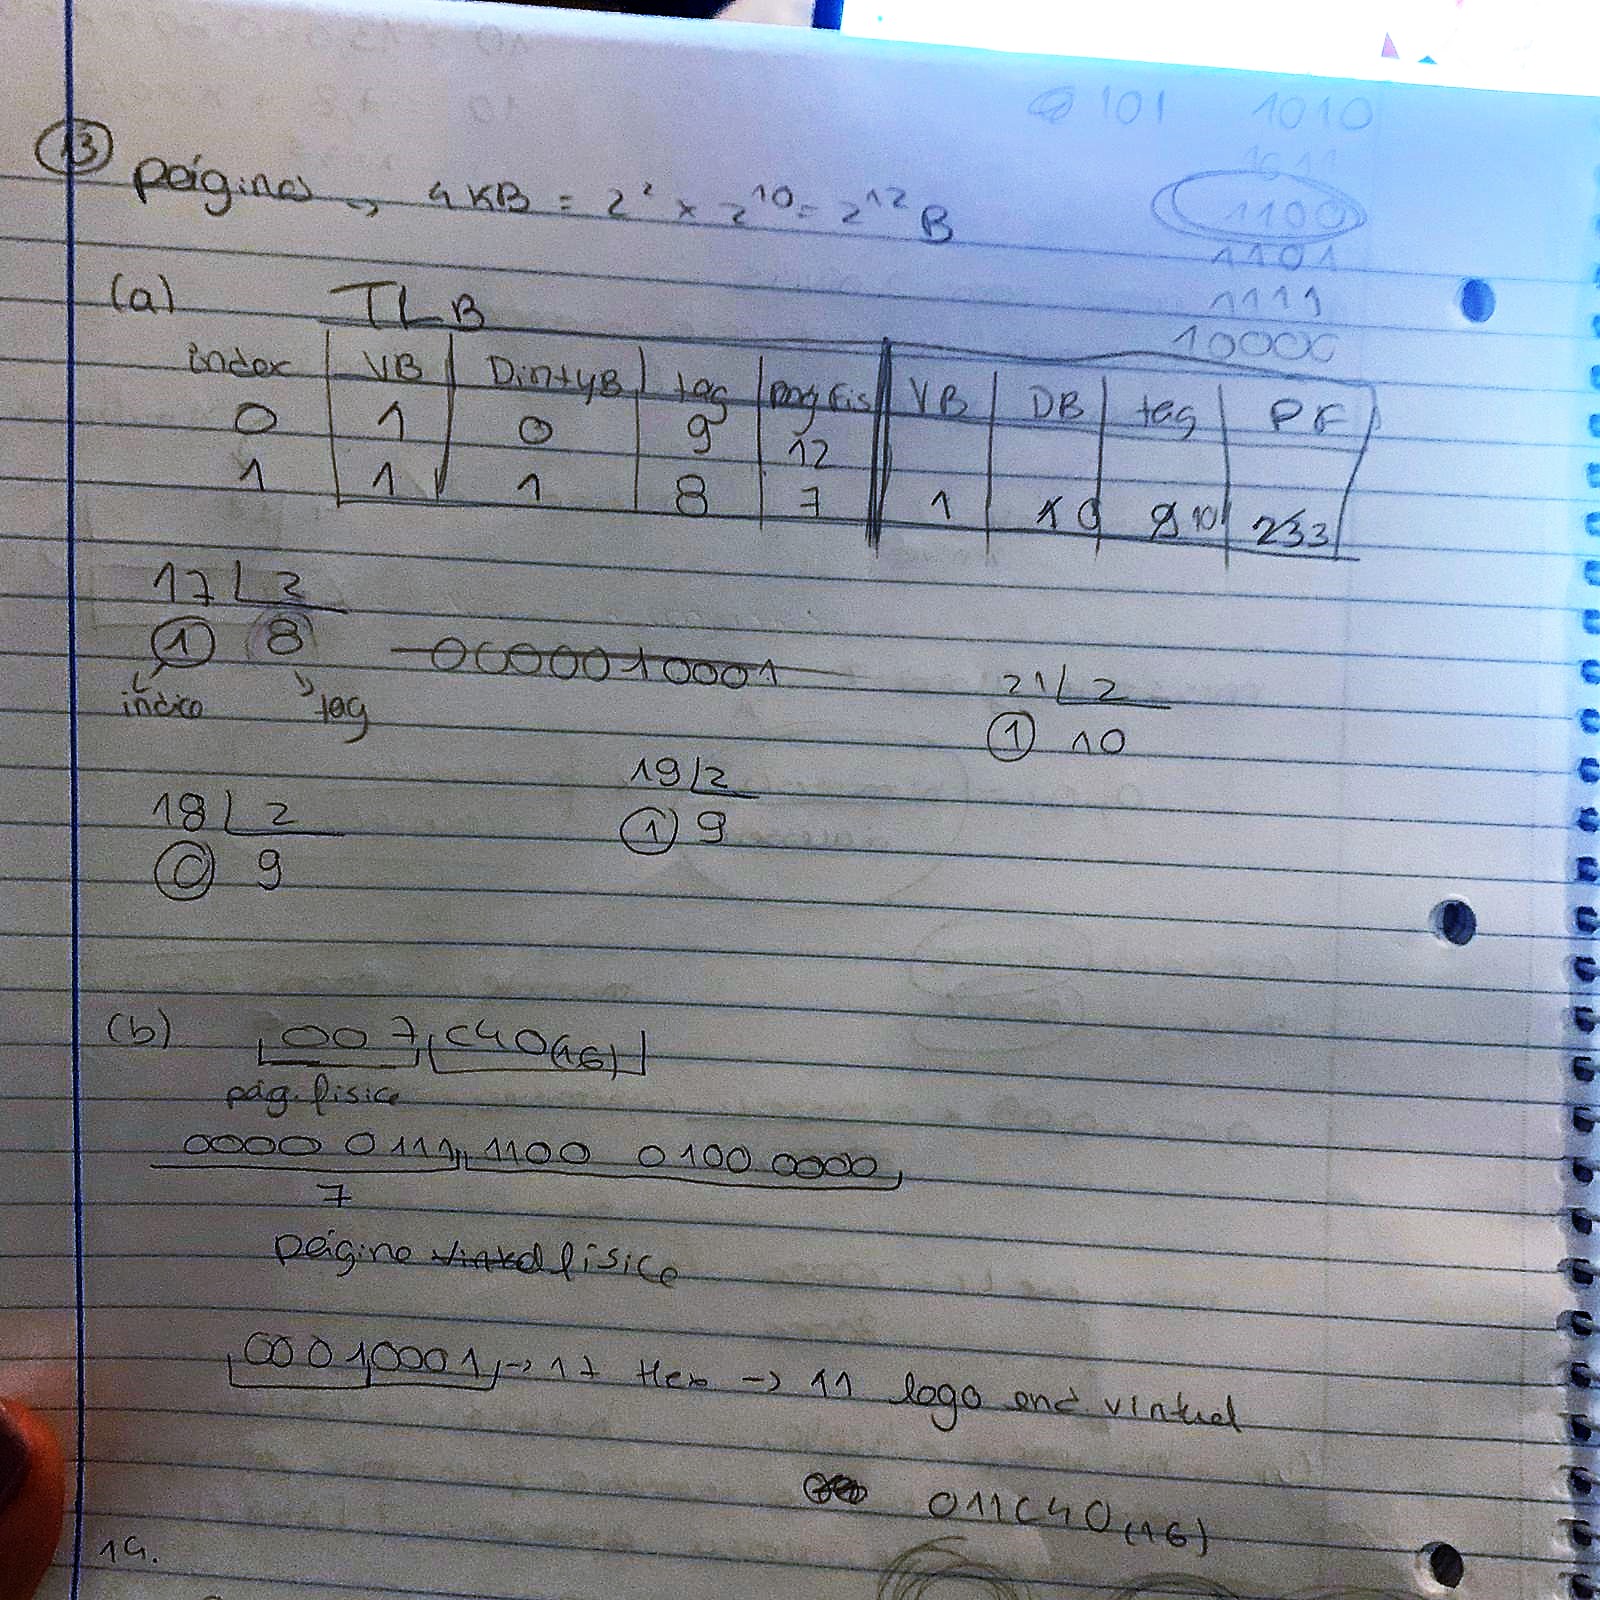 13 páginas → 4KB = 2² × 2¹⁰ = 2¹² B
(a) TLB
index | VB | DirtyB | tag | pag fis | VB | DB | tag | PF
0 | 1 | 0 | 9 | 12
1 | 1 | 1 | 8 | 7 | 1 | 0 | 10 | 233
17 | 2
1 8
índice tag
0000010001
21 | 2
1 10
19 | 2
1 9
18 | 2
0 9
(b) 007 C40(16)
pág. física
0000 0111 1100 0100 0000
7
página virtual física
00010001 → 17 Hex → 11 logo end. virtual
011C40(16)
14.